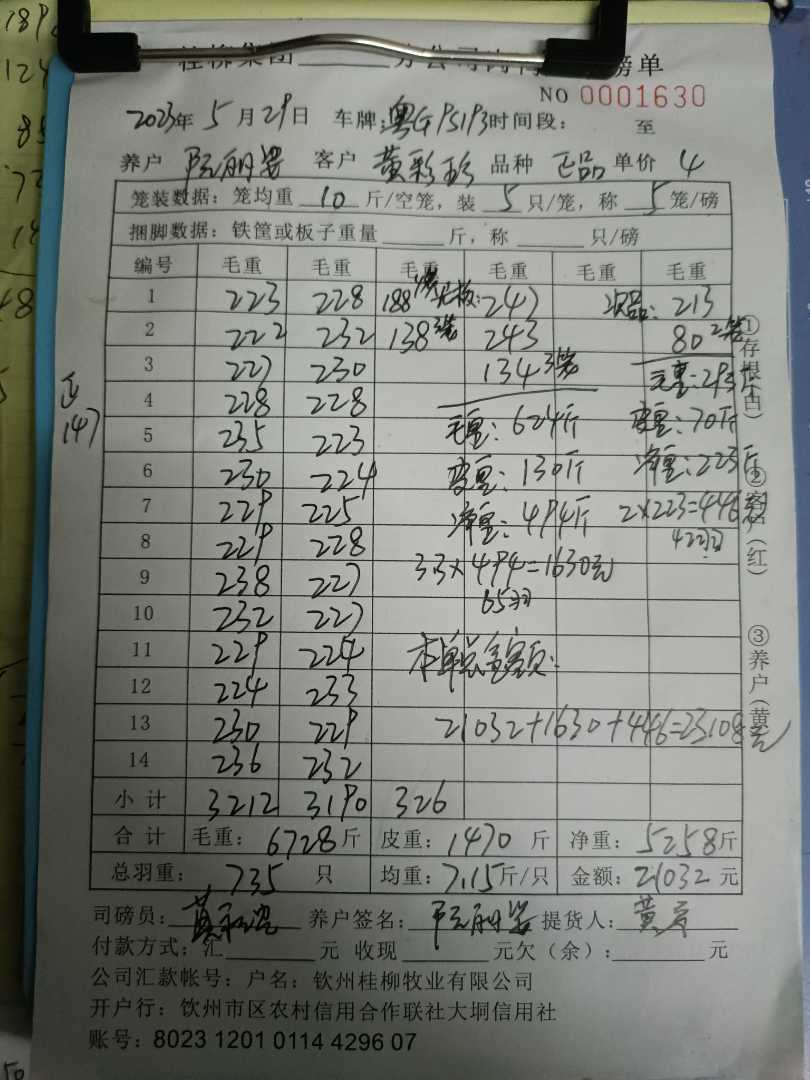 桂柳集团 分公司 磅单
NO 0001630
2023年 5月29日 车牌:粤GPS1P3 时间段: 至
养户 阮丽 客户 黄彩珍 品种 正品 单价 4
笼装数据:笼均重 10 斤/空笼,装 5 只/笼,称 5 笼/磅
捆脚数据:铁筐或板子重量 斤,称 只/磅
编号 毛重 毛重 毛重 毛重 毛重 毛重
1 223 228 188 247 次品: 213
2 222 232 138 3笼 243 80 2笼
3 227 230 134 3笼 毛重:293斤
4 228 228 毛重:624斤 皮重:70斤
5 235 223 皮重:130斤 净重:223斤
6 230 224
7 229 225 净重:494斤 2×223=446
8 229 228
9 238 227 3.3×494=1630元
10 232 227 65羽
11 229 224 本单总金额:
12 224 233
13 230 229 21032+1630+446=23108元
14 236 232
小计 3212 3190 326
合计 毛重:6728斤 皮重:1470斤 净重:5258斤
总羽重: 735 只 均重:7.15斤/只 金额:21032元
司磅员:黄 养户签名:阮丽 提货人:黄
付款方式:汇 元 收现 元欠(余): 元
公司汇款帐号:户名:钦州桂柳牧业有限公司
开户行:钦州市区农村信用合作联社大垌信用社
账号:8023 1201 0114 4296 07
①存根(白)
②客户(红)
③养户(黄)
正
147